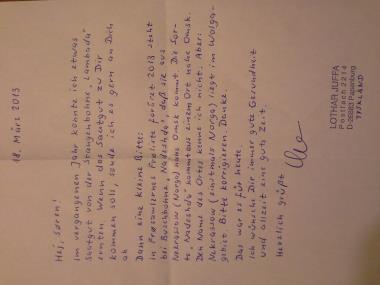 18. März 2013
Hej, Søren!
Im vergangenen Jahr konnte ich etwas
Saatgut von der Stangenbohne „Lambada“
ernten. Wenn das Saatgut zu Dir
kommen soll, sende ich es gern an Dich
ab
Dann eine kleine Bitte:
In Frøsamlerne Frøliste forår 2013 steht
bei Buschbohne „Nadeshda“, daß sie aus
Nekrassow (Norga) nahe Omsk kommt. Die Sor-
te „Nadeshda“ kommt aus einem Ort nahe Omsk.
Den Name des Ortes kenne ich nicht. Aber:
Nekrassow (ehemals Norga) liegt im Wolga-
gebiet. Bitte korrigieren. Danke.
Das war es für heute.
Ich wünsche Dir immer gute Gesundheit
und allzeit eine gute Zeit
Herzlich grüßt
LOTHAR JUFFA
Postfach 2214
Papenburg
TYSKLAND